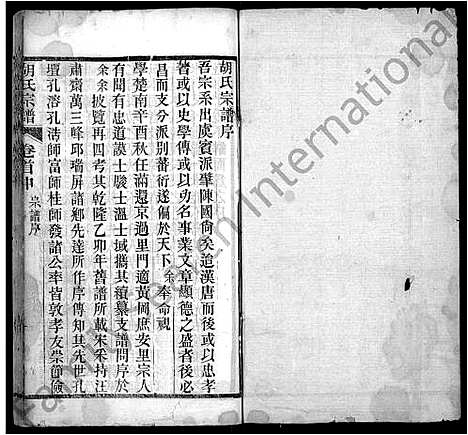 胡氏宗譜序
吾宗系出虞賓派肇陳國尙矣追漢唐而後或以忠孝
著或以史學傳或以功名事業文章顯德之盛者後必
昌而支分派別蕃衍遂徧於天下余奉命視
學楚南辛酉秋任滿還京過里門適黃岡庶安里宗人
有聞有忠道謨士駿士溫士域攜其續纂支譜問序於
余余披覽再四考其乾隆乙卯年舊譜所載宋釆持汪
肅齋萬三峰邱瑞屏諸鄉先達所作序傳知其先世孔
壇孔溶孔浩師富師桂師發諸公率皆敦孝友崇節儉
胡氏宗譜
卷首中
宗譜序